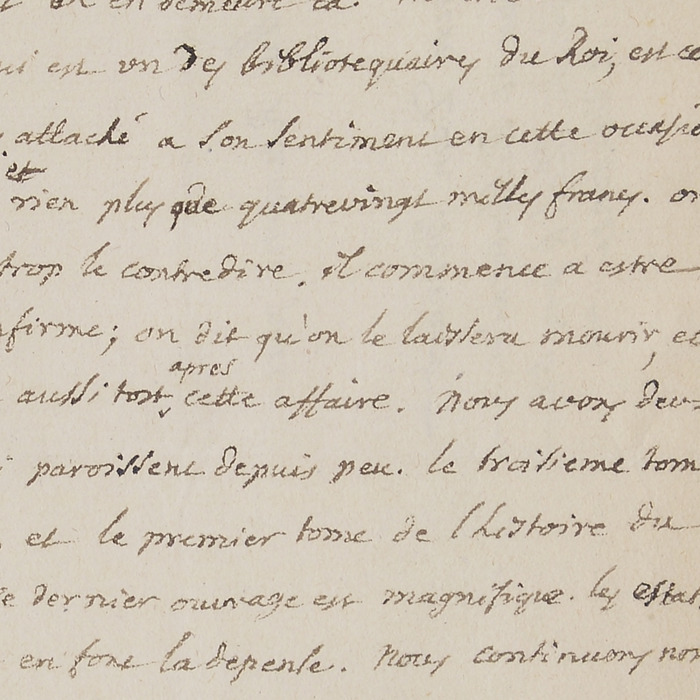 en demeure la.
est un des bibliotequaires du Roi, est
attaché a son sentiment en cette
et
rien plus que quatrevingt mille francs. on
trop le contredire. il commence a estre
on dit qu'on le laissera mourir, et
apres
aussi tost cette affaire. Nous avons
paroissent depuis peu. le troisieme
et le premier tome de l'histoire du
dernier ouvrage est magnifique. les
en font la depense. Nous continuons